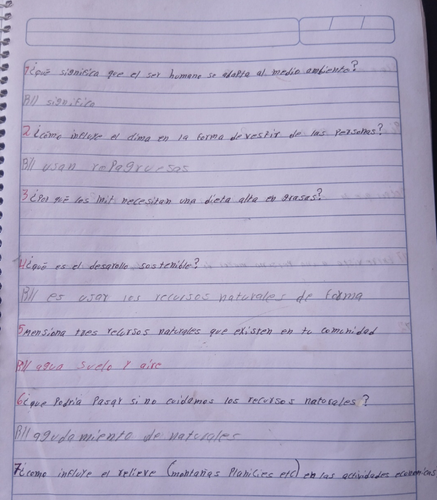 1 ¿que significa que el ser humano se adapta al medio ambiente?
R// significa
2 ¿como influye el clima en la forma de vestir de las personas?
R// usan ropa gruesas
3 ¿Por qué los init necesitan una dieta alta en grasas?
4 ¿qué es el desarrollo sostenible?
R// es usar los recursos naturales de forma
5 mensiona tres recursos naturales que existen en tu comunidad
R// agua suelo y aire
6 ¿que Podria Pasar si no cuidamos los recursos naturales?
R// agudamiento de naturales
7 ¿como influye el relieve (montañas Planicies etc) en las actividades economicas